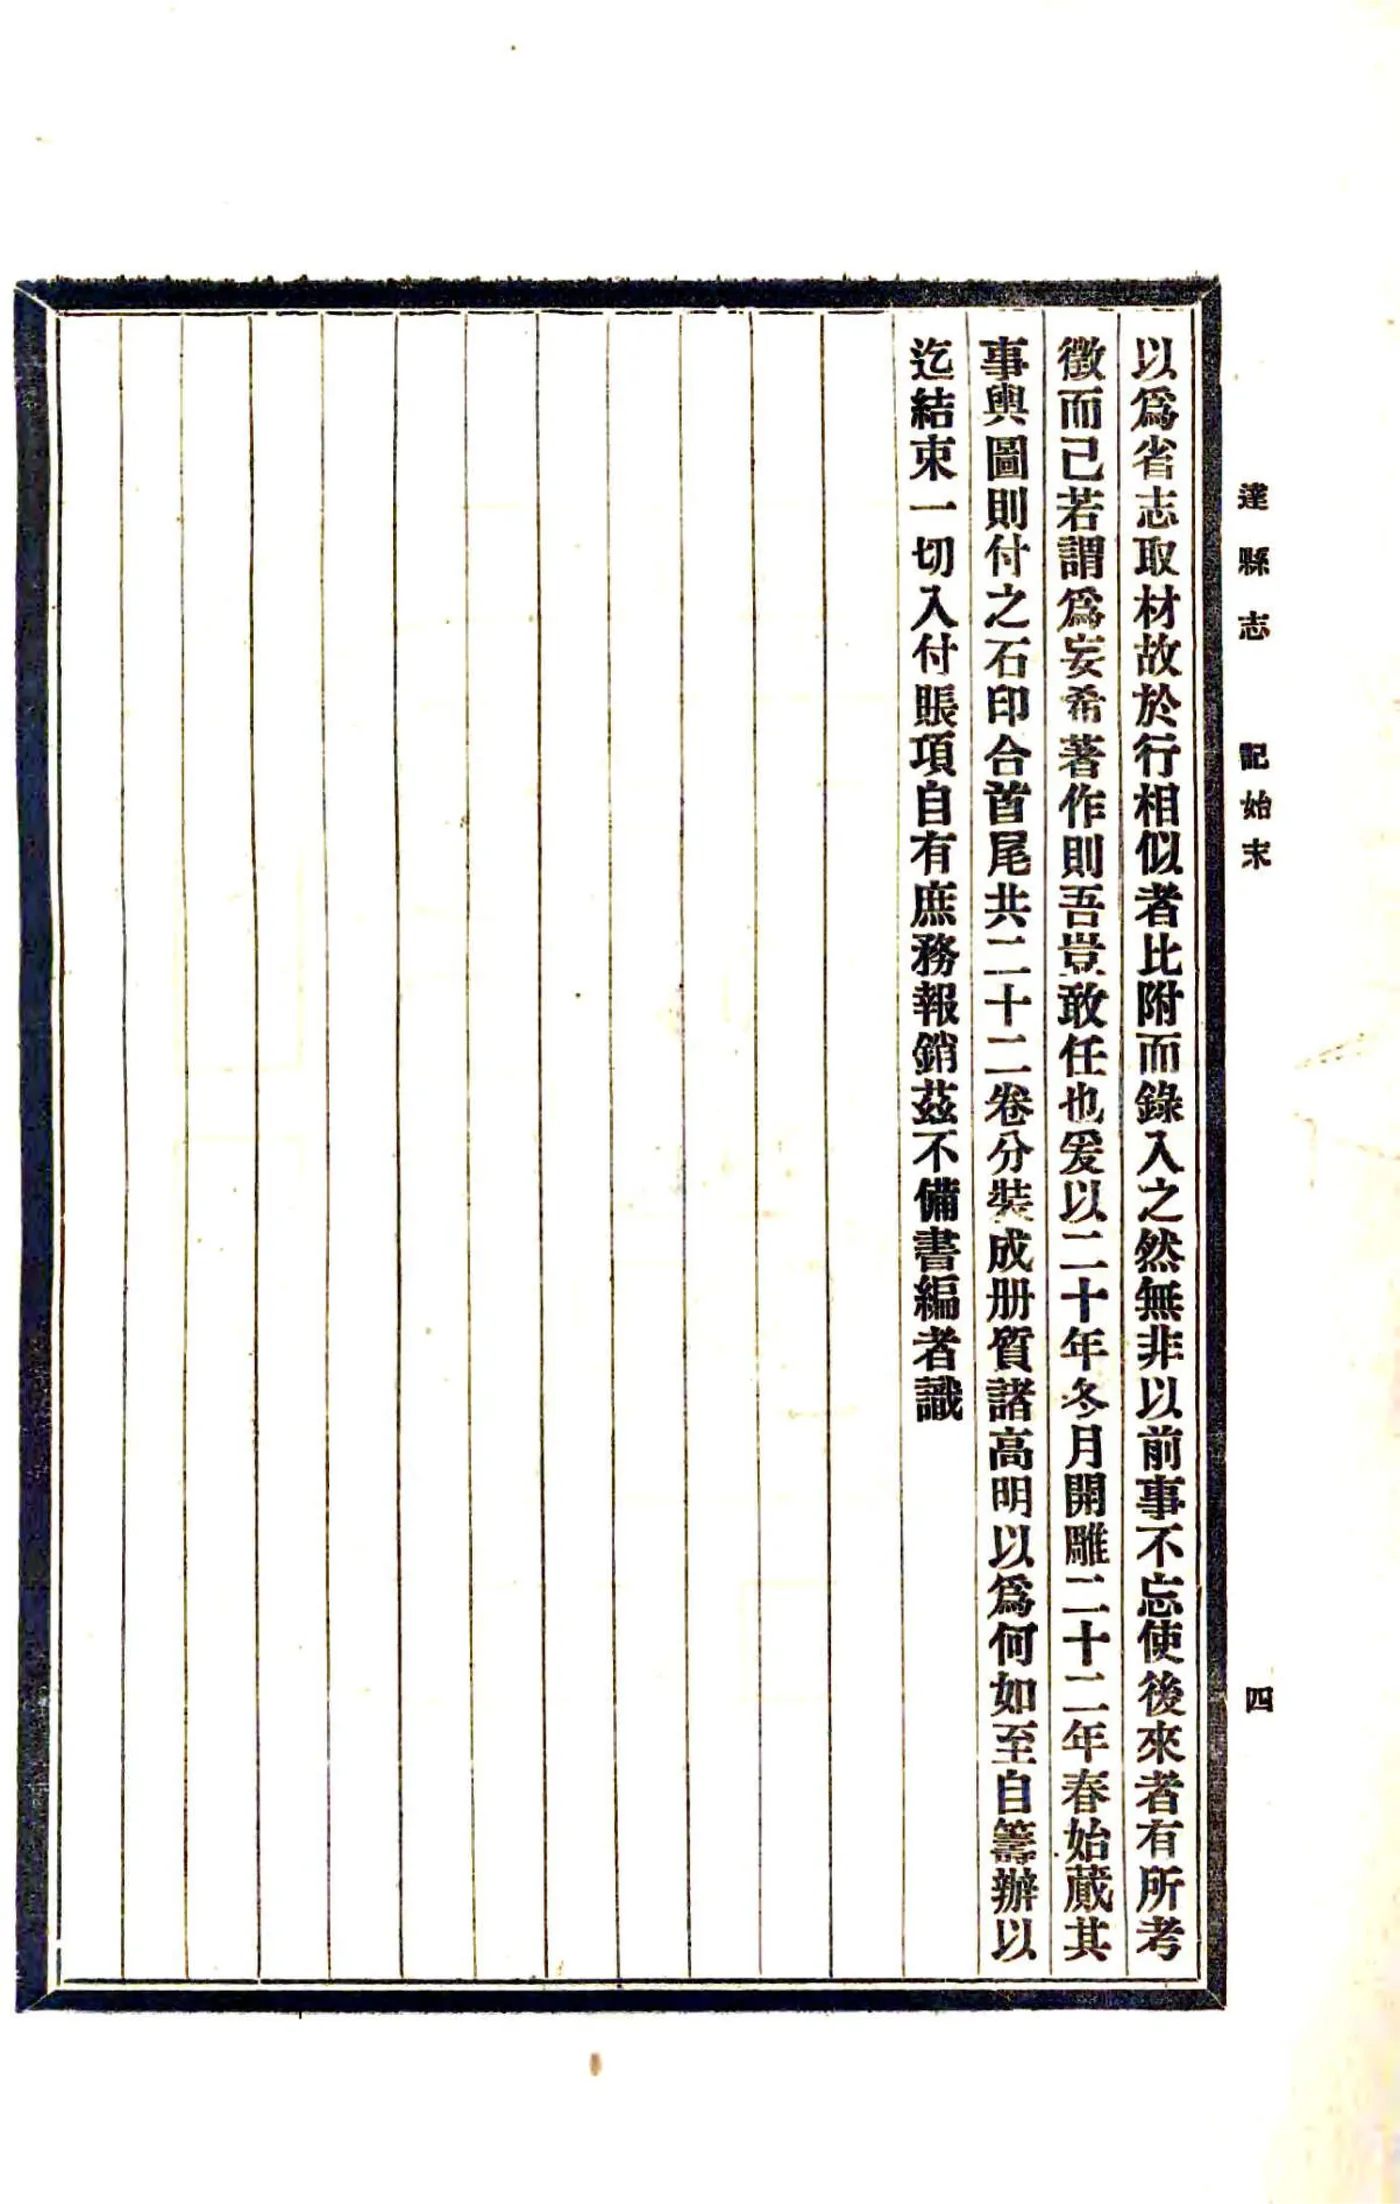 達縣志 記始末 四
以爲省志取材故於行相似者比附而錄入之然無非以前事不忘使後來者有所考
徵而已若謂爲妄希著作則吾豈敢任也爰以二十年冬月開雕二十二年春始蕆其
事輿圖則付之石印合首尾共二十二卷分裝成册質諸高明以爲何如至自籌辦以
迄結束一切入付賬項自有庶務報銷茲不備書編者識